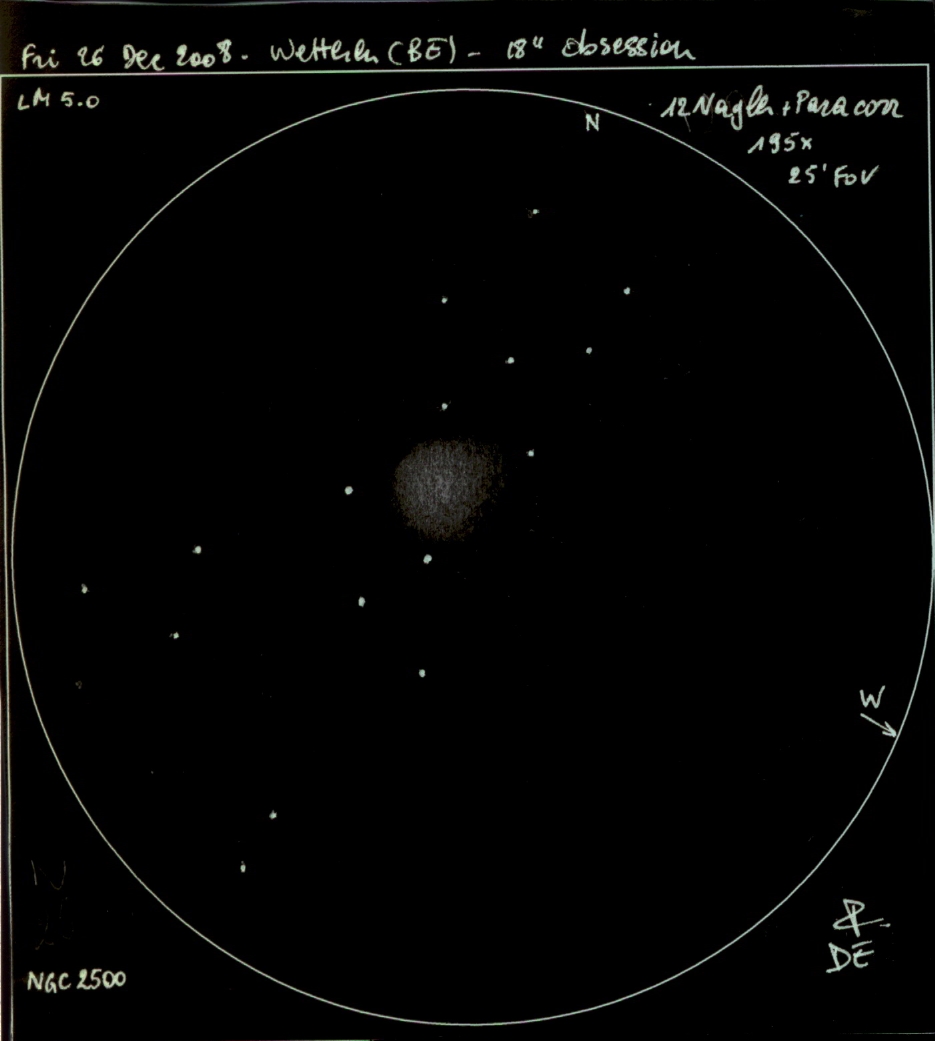 Fri 26 Dec 2008 - Wetteren (BE) - 18" obsession
LM 5.0
12 Nagler + Paracorr
195x
25' FoV
N
W
DE
NGC 2500